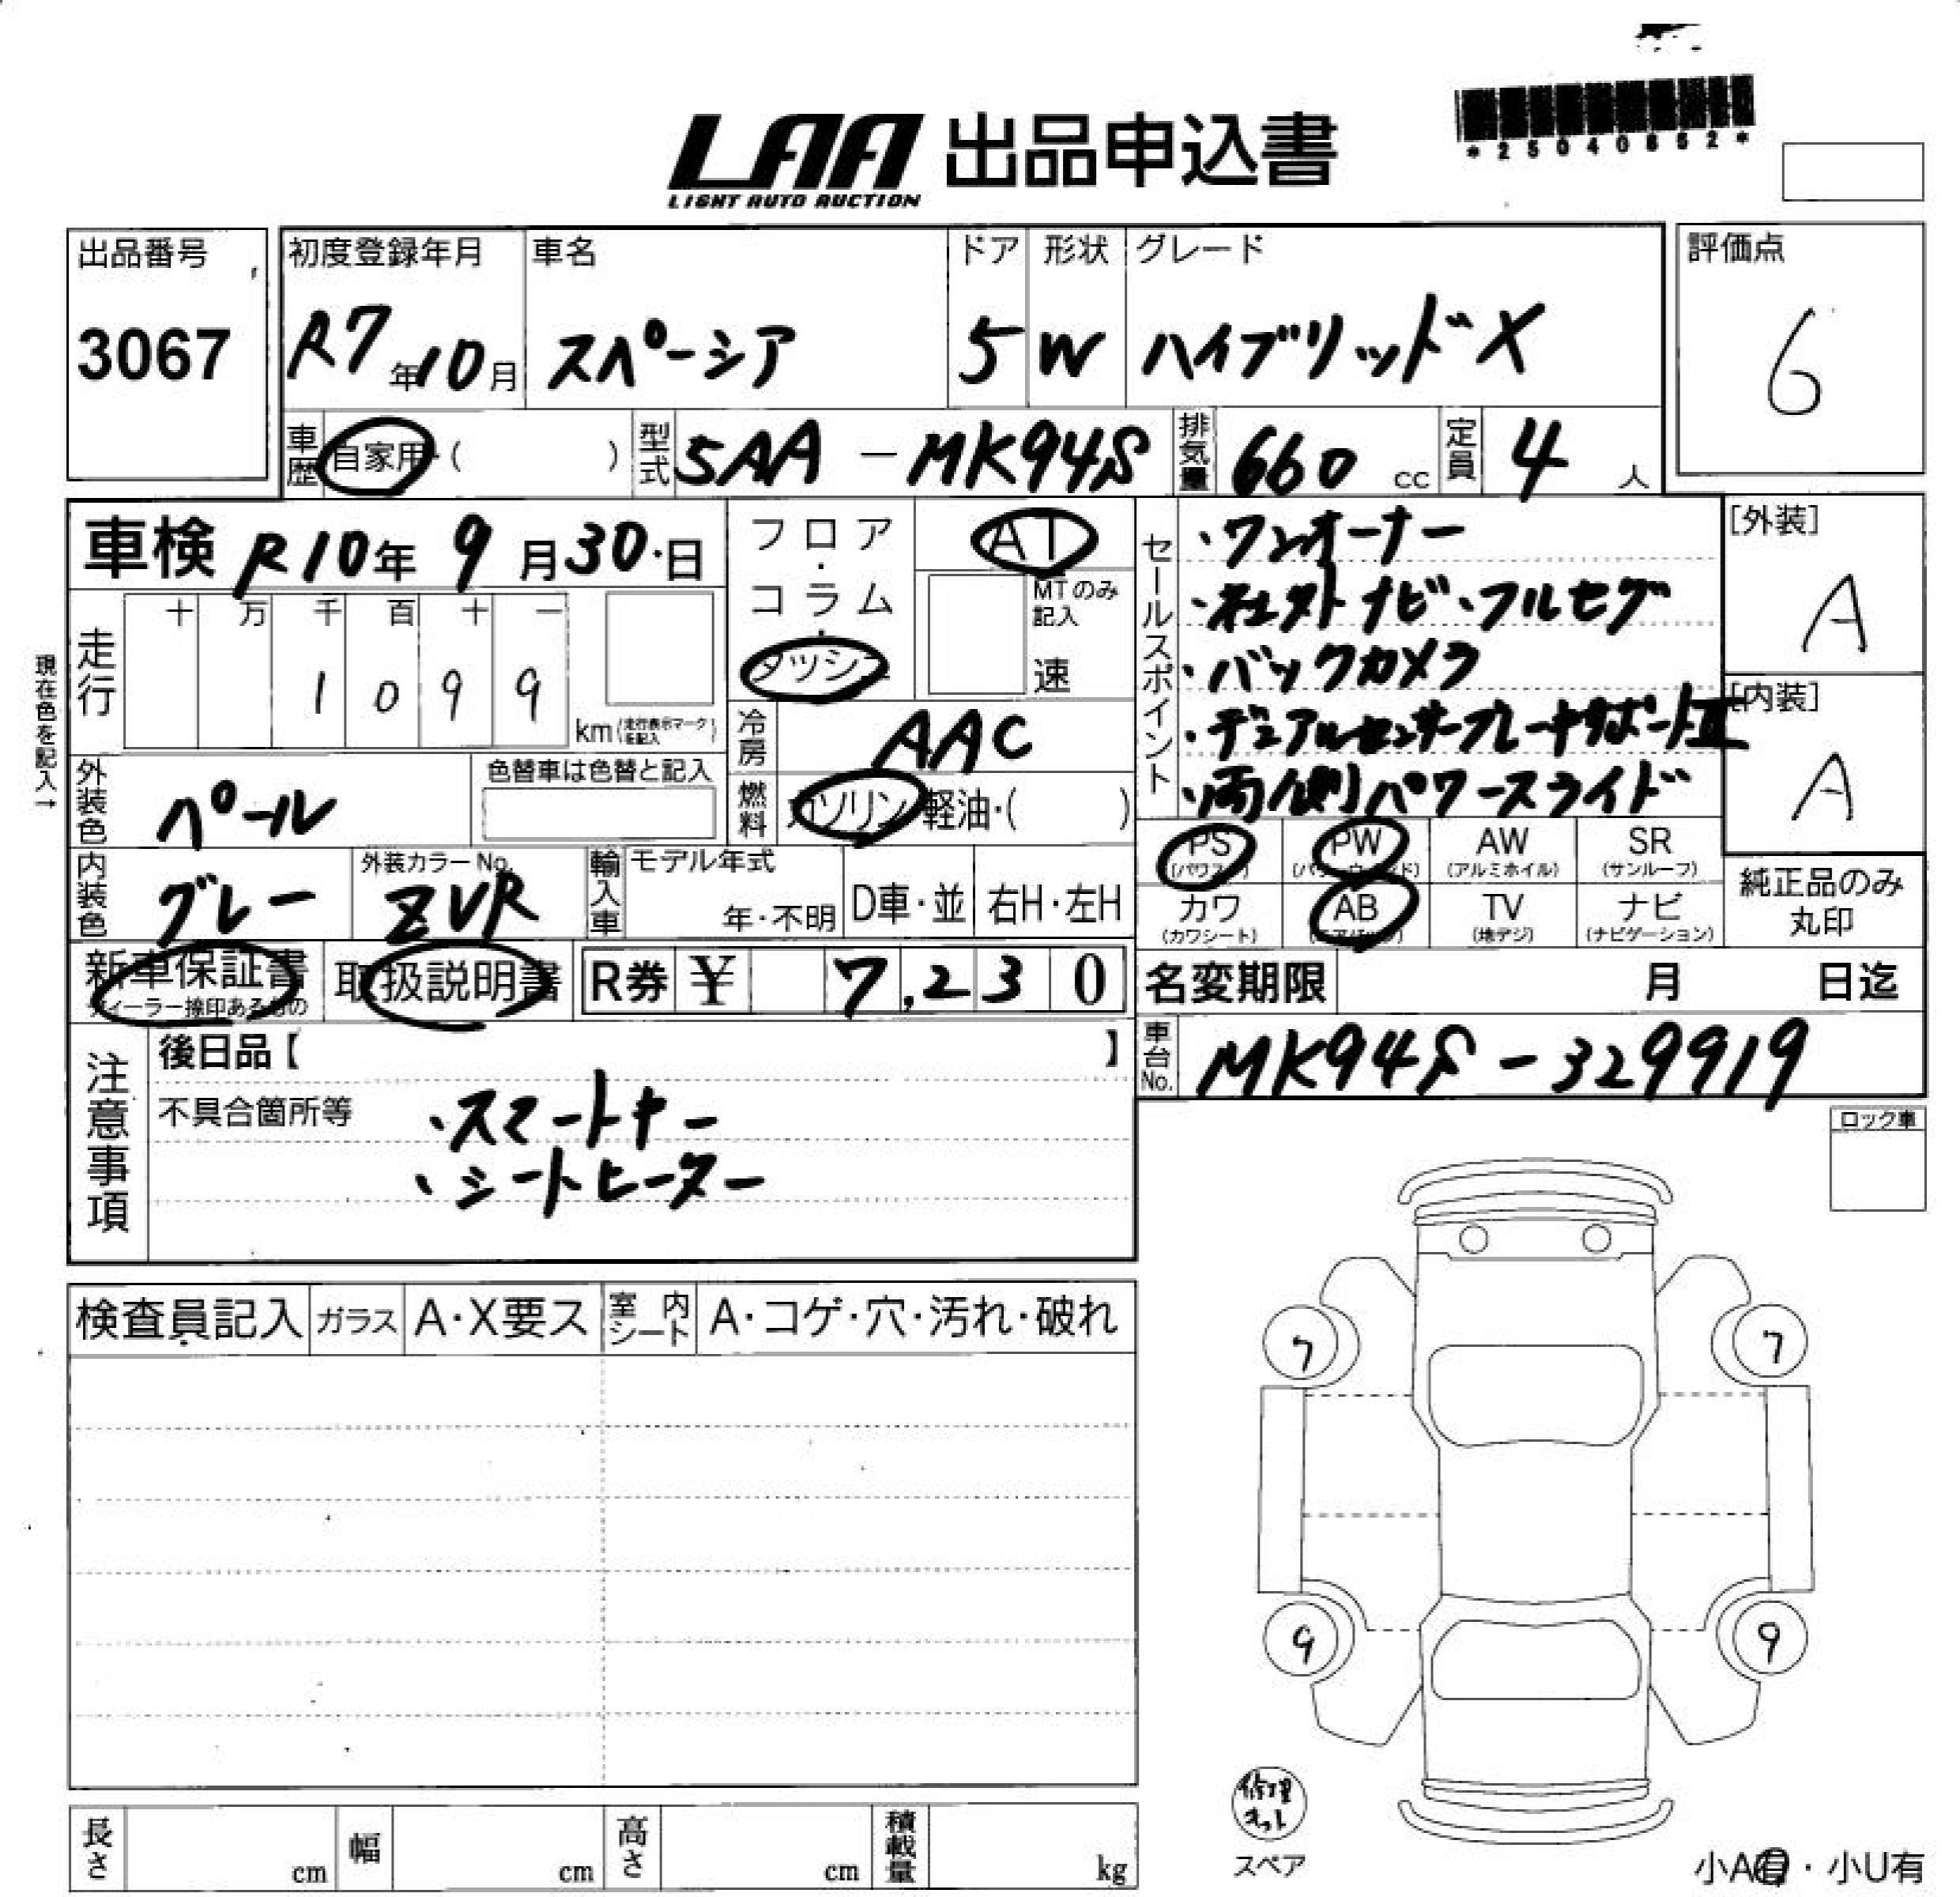 *25040652*
LAA 出品申込書
LIGHT AUTO AUCTION
出品番号
3067
初度登録年月
R7年10月
車名
スペーシア
ドア
5
形状
W
グレード
ハイブリッドX
評価点
6
車歴 自家用・( )
型式 5AA-MK94S
排気量 660 cc
定員 4 人
車検 R10年 9月30日
フロア・コラム・ダッシュ
AT
MTのみ記入
速
走行
十 万 千 百 十 一
1 0 9 9
km(走行表示マークを記入)
現在色を記入→
冷房 AAC
外装色 パール
色替車は色替と記入
燃料 ガソリン・軽油・( )
内装色 グレー
外装カラーNo. ZVR
輸入車 モデル年式
年・不明
D車・並
右H・左H
セールスポイント
・ワンオーナー
・社外ナビ・フルセグ
・バックカメラ
・デュアルセンサーブレーキサポートⅡ
・両側パワースライド
[外装]
A
[内装]
A
PS (パワステ)
PW (パワーウィンド)
AW (アルミホイル)
SR (サンルーフ)
カワ (カワシート)
AB (エアバッグ)
TV (地デジ)
ナビ (ナビゲーション)
純正品のみ
丸印
新車保証書
ディーラー捺印あるもの
取扱説明書
R券 ¥ 7,230
名変期限 月 日迄
車台No. MK94S-329919
注意事項
後日品【 】
不具合箇所等
・スマートキー
・シートヒーター
ロック車
検査員記入
ガラス A・X要ス
室内シート A・コゲ・穴・汚れ・破れ
7
7
9
9
修理キット
スペア
小A有・小U有
長さ cm
幅 cm
高さ cm
積載量 kg